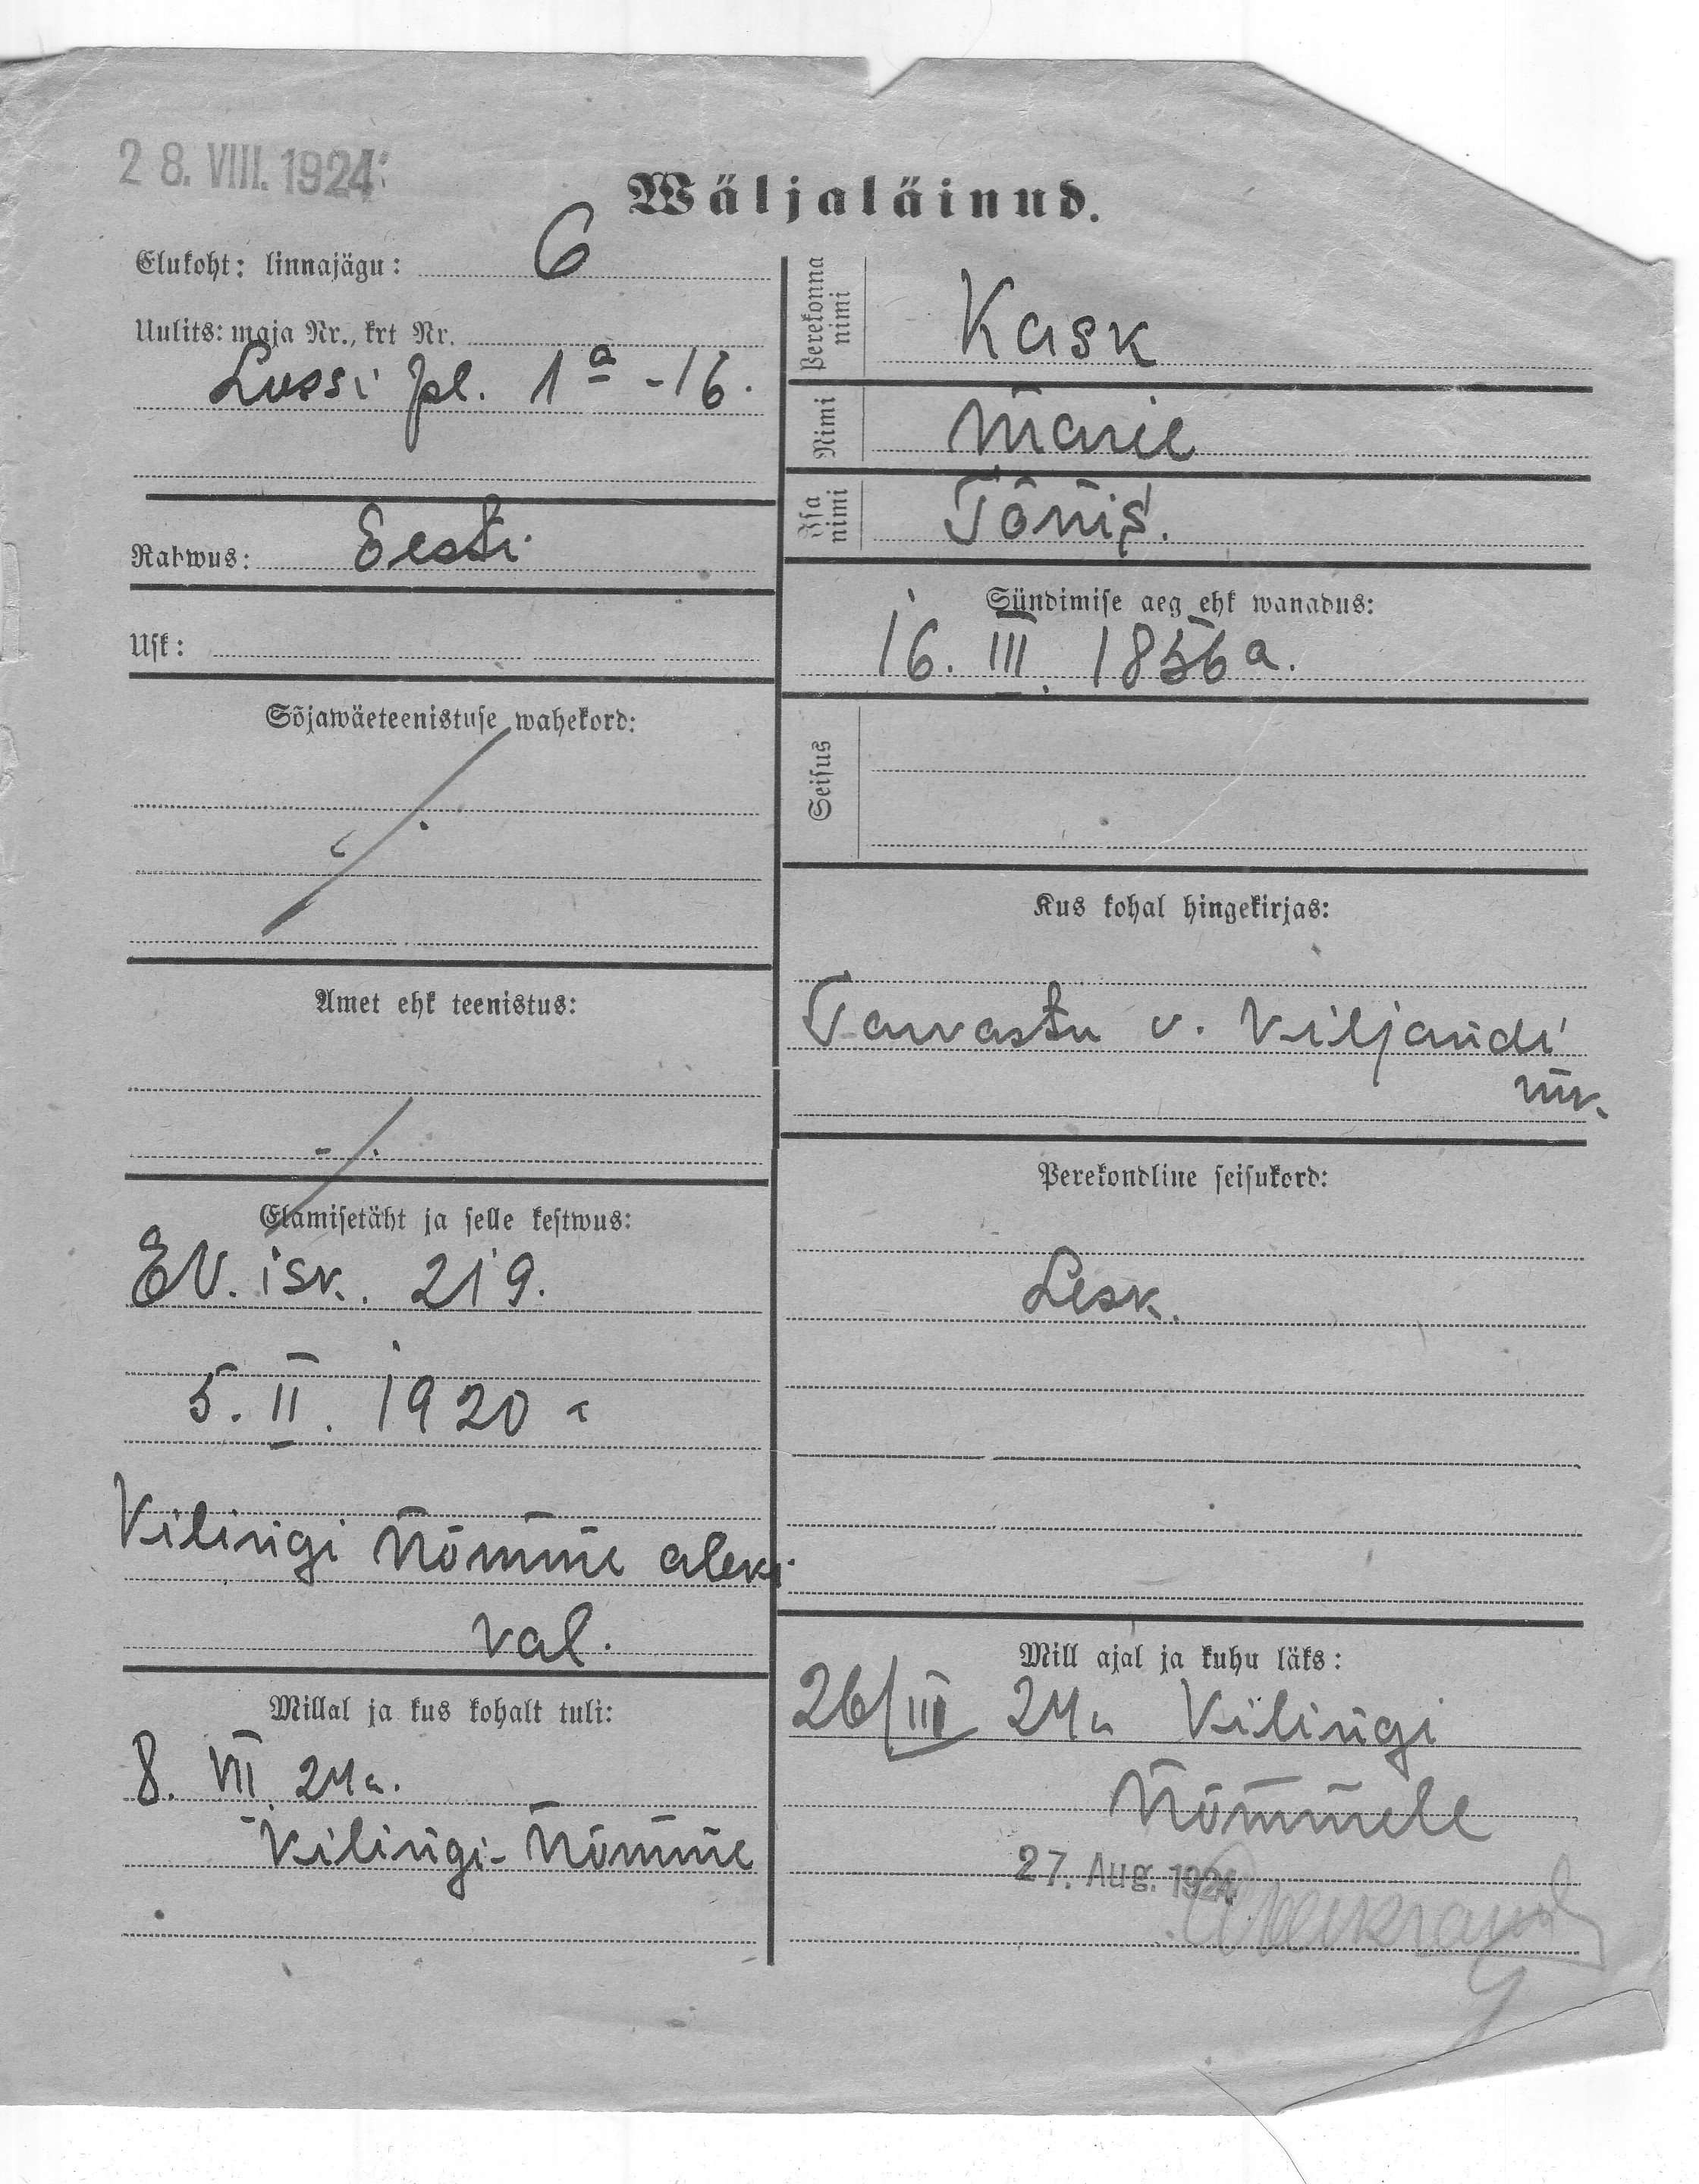 28. VIII. 1924.
Wäljaläinud.
Elukoht: linnajägu: 6
Uulits: maja Nr., krt Nr.
Lussi pl. 1a -16.
Rahwus: Eesti
Usk:
Sõjawäeteenistuse wahekord:
Amet ehk teenistus:
Elamisetäht ja selle kestwus:
EV. isk. 219.
5. II. 1920 a
Kilingi Nõmme alewi
val.
Millal ja kus kohalt tuli:
8. VII 24 a.
Kilingi-Nõmme
Perekonna nimi
Kask
Nimi
Marie
Isa nimi
Tõnis.
Sündimise aeg ehk wanadus:
16. III. 1856 a.
Seisus
Kus kohal hingekirjas:
Tarvastu v. Viljandi
mk.
Perekondline seisukord:
Lesk.
Mill ajal ja kuhu läks:
26/III 24 a Kilingi
Nõmmele
27. Aug. 1924